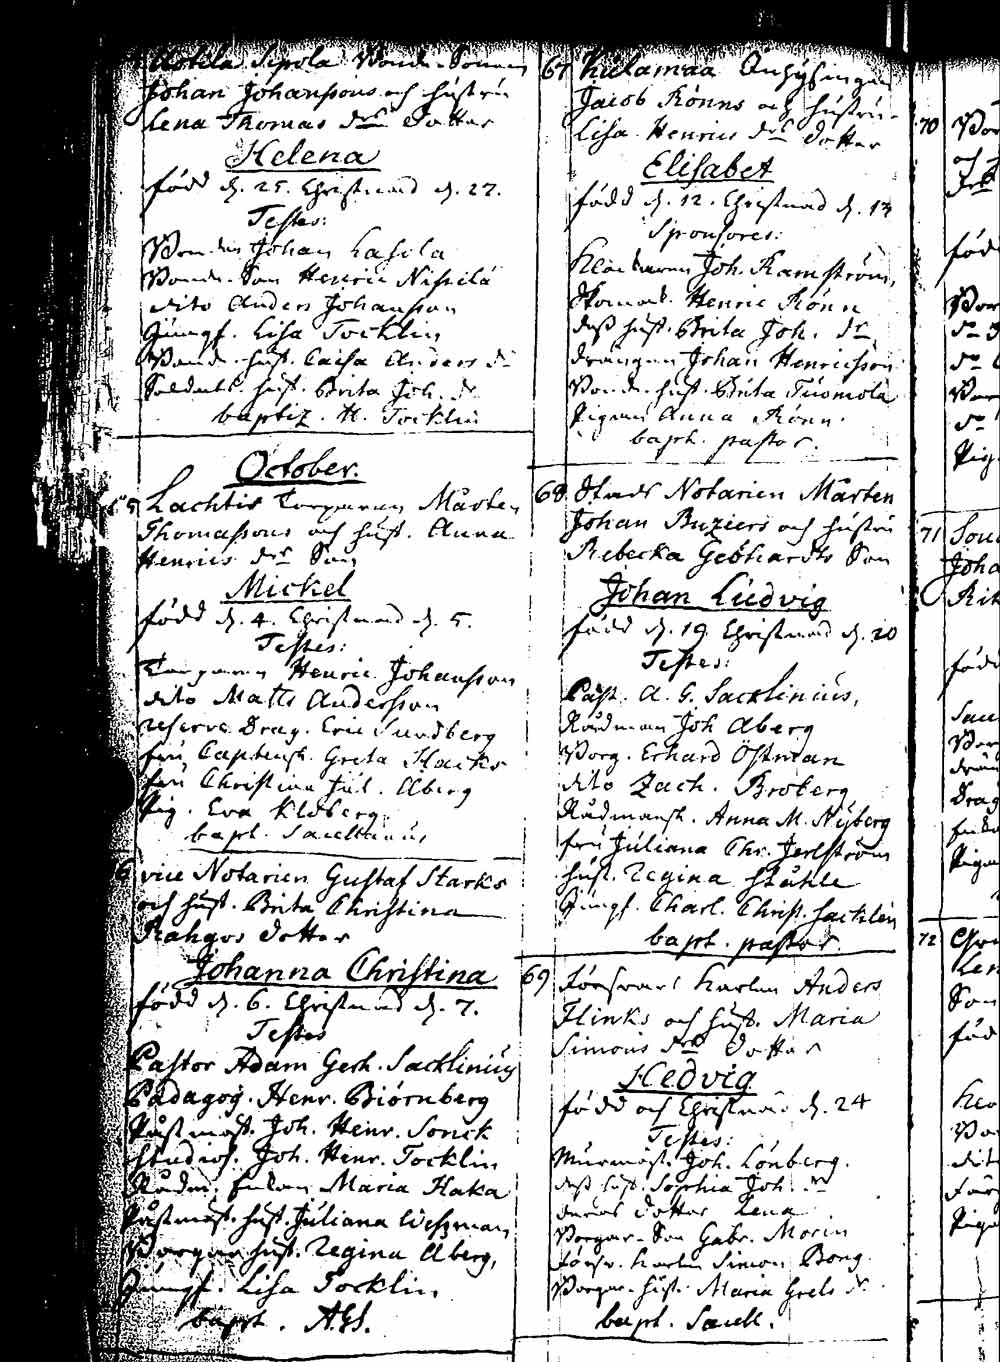 Johan Johanssons och hustru
Lena Thomas dr dotter
Helena
född d. 25. Christnad d. 27.
Testes:
Bonden Johan Lasila
Bonde-Son Henric Nissilä
dito Anders Johansson
Jungf. Lisa Tocklin
Bond. hust. Caisa Anders dr
Soldats hust. Brita Joh. dr
baptiz. H. Tocklin
October.
Lachtis Torparen Mårten
Thomassons och hust. Anna
Henrics dr Son
Mickel
född d. 4. Christnad d. 5.
Testes:
Torparen Henric Johansson
dito Matts Andersson
reserve Drag. Eric Sundberg
fru Captensk. Greta Hacks
fru Christina Jul. Aberg
Pig. Eva Klöberg
bapt. Sacklinius
6 vice Notarien Gustaf Starks
och hust. Brita Christina
dotter
Johanna Christina
född d. 6. Christnad d. 7.
Testes
Pastor Adam Gerh. Sacklinius
Pädagog. Henr. Biörnberg
Joh. Henr. Sonck
Studios. Joh. Henr. Tocklin
Maria Haka
hust. Juliana Wessman
hust. Regina Aberg,
Jungf. Lisa Tocklin
bapt. AGS.
67 Kulamaa
Jacob Rönns och hustru
Lisa Henrics dr dotter
Elisabet
född d. 12. Christnad d. 13
Sponsores:
Joh. Ramström,
Henric Rönn
dess hust. Brita Joh. dr
drängen Johan Henricsson
Bonde hust. Brita Tuomola
Pigan Anna Rönn.
bapt. pastor.
68. Stads Notarien Mårten
Johan Buziers och hustru
Rebecka Gebhardts Son
Johan Ludvig
född d. 19. Christnad d. 20
Testes:
Past. A. G. Sacklinius,
Rådman Joh Aberg
Borg. Erhard Östman
dito Zach. Broberg
Rådmansk. Anna M. Nyberg
fru Juliana Chr. Jerlström
hust. Regina Ståhle
Jungf. Charl. Christ. Sacklen
bapt. pastor.
69 Försvars karlen Anders
Flinks och hust. Maria
Simons dr dotter
Hedvig
född och Christnad d. 24
Testes:
Murmäst. Joh. Lönberg.
dess hust. Sophia Joh. dr
deras dotter Lena
Borgar-Son Gabr. Morin
försv. karlen Simon Borg
Borgar hust. Maria Grels dr
bapt. Sackl.
70
71
Joha
72